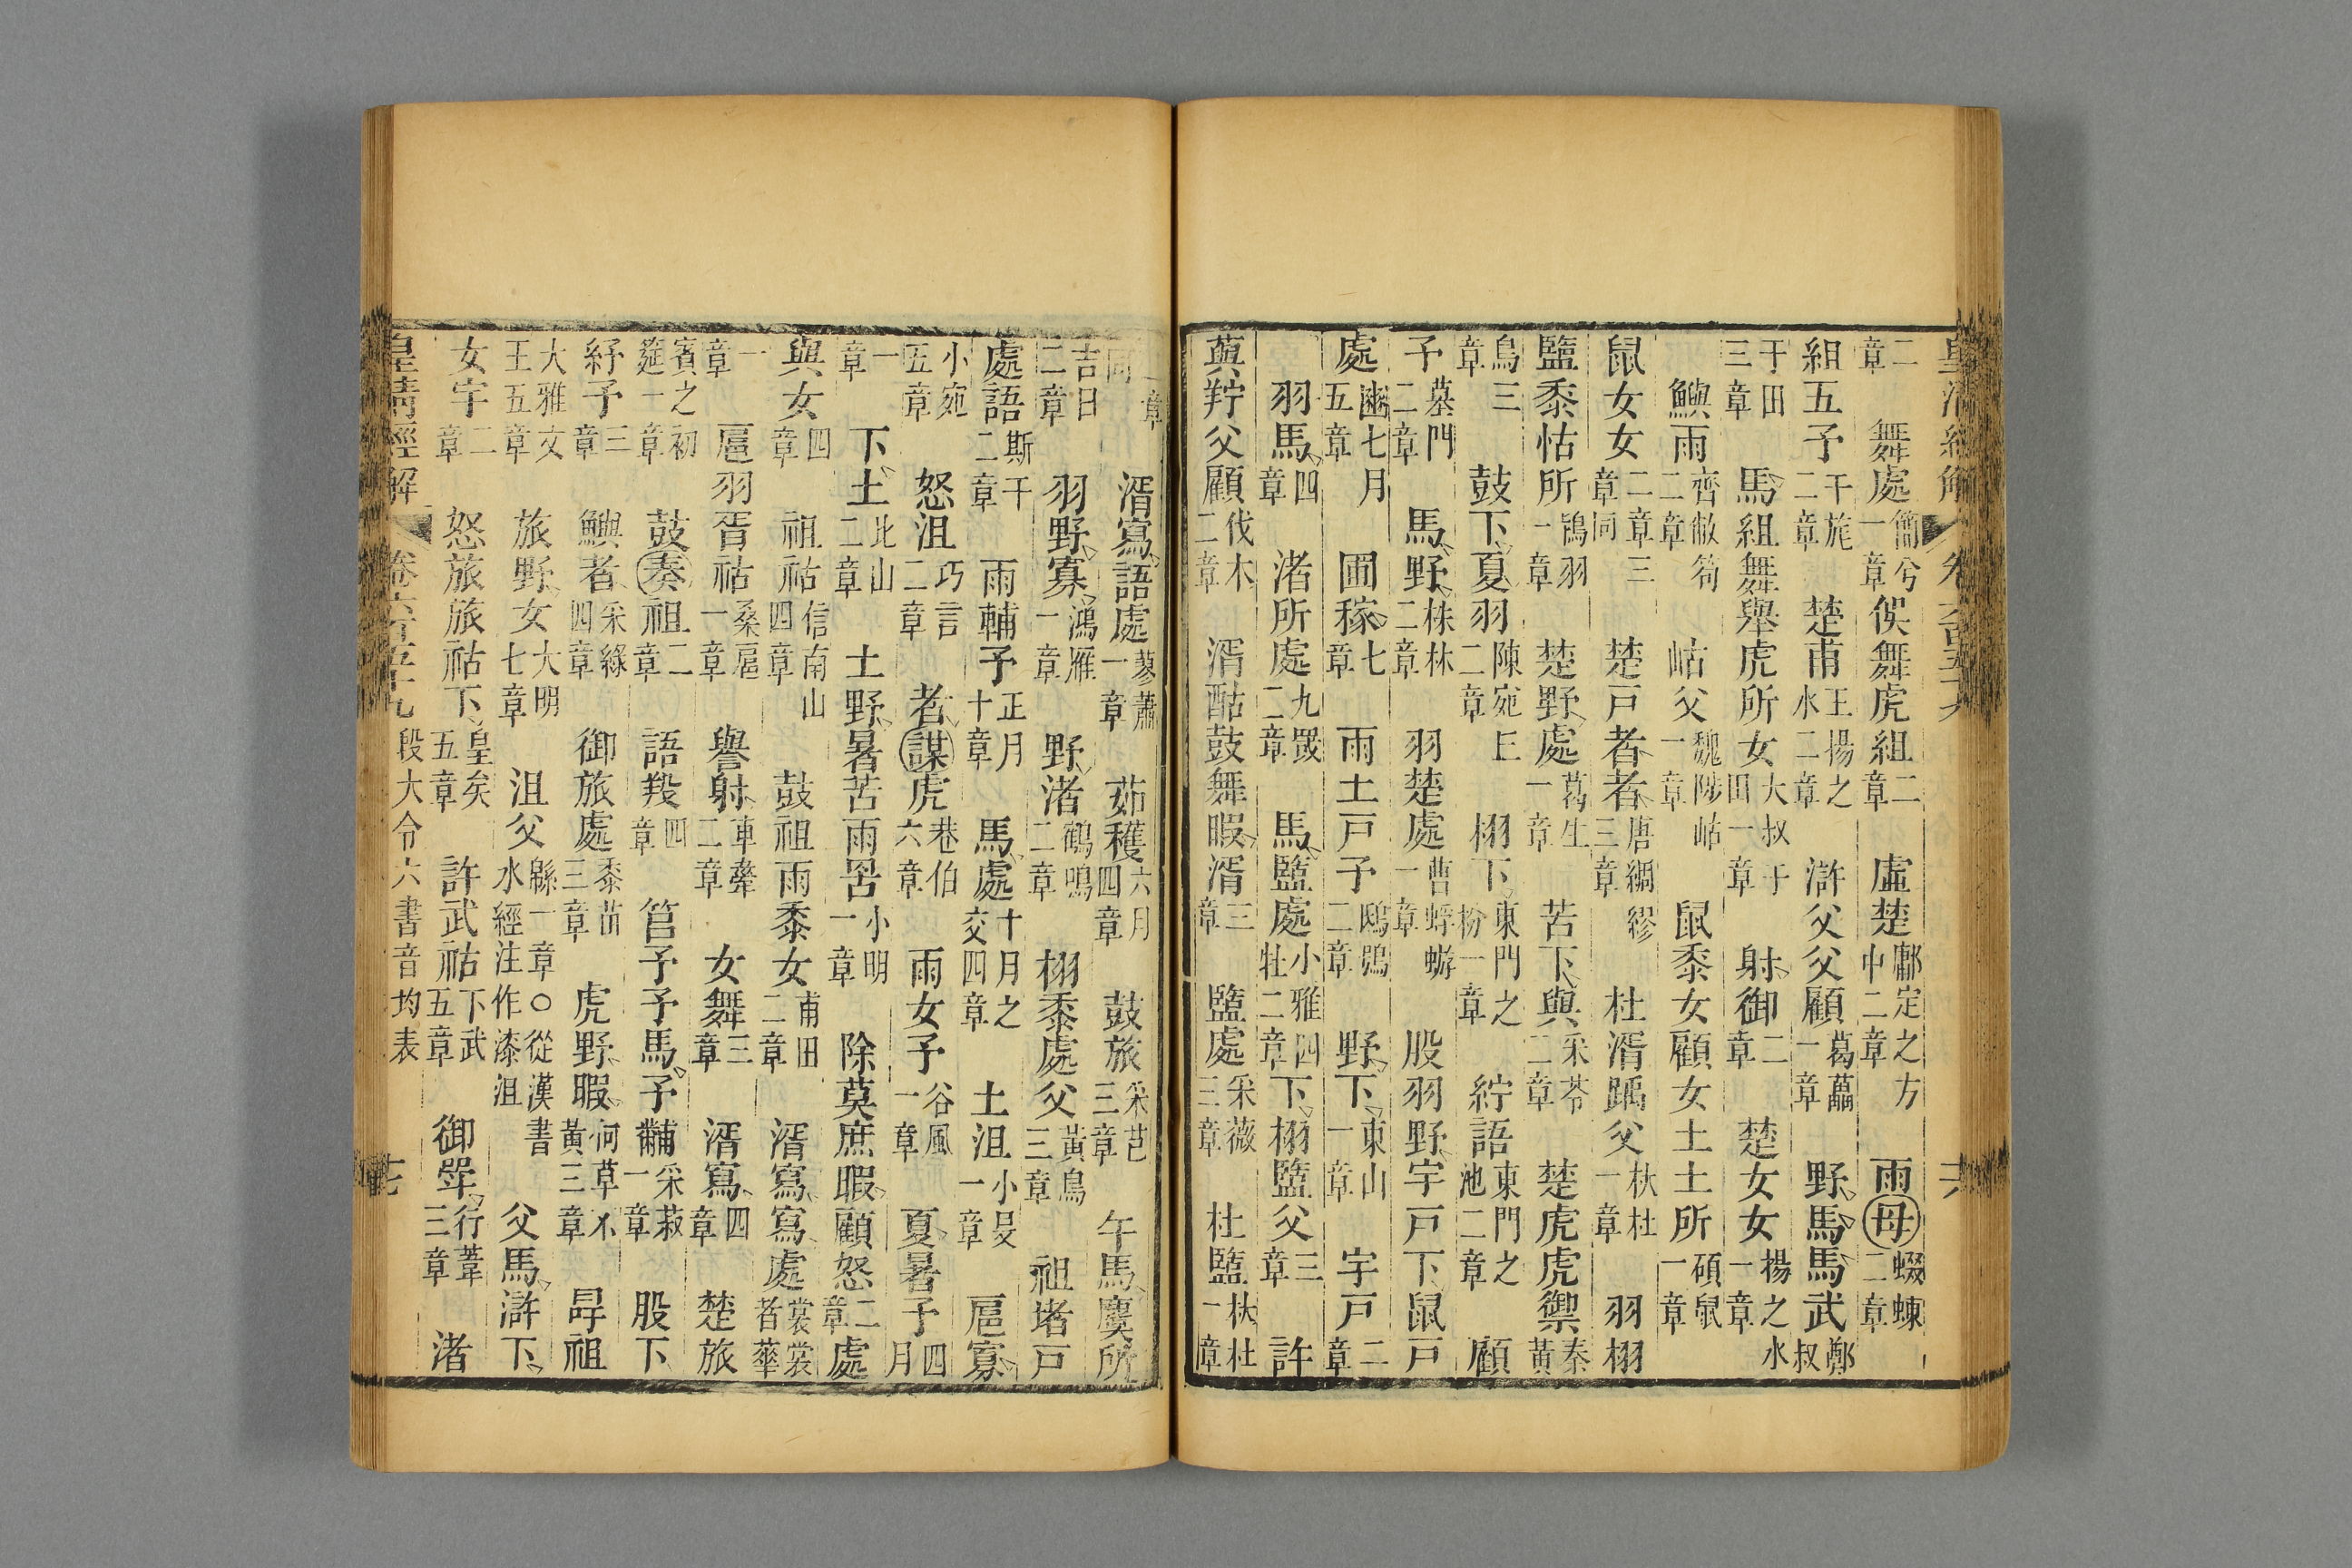 皇清經解
二章 舞處簡兮一章俁舞虎組二章 虛楚鄘定之方中二章 雨母蝃蝀二章
組五予干旄二章 楚甫王揚之水二章 滸父父顧葛藟一章 野馬馬武鄭叔
于田三章 馬組舞舉虎所女大叔于田一章 射御二章 楚女女揚之水一章
鱮雨齊敝笱二章 岵父魏陟岵一章 鼠黍女顧女土土所碩鼠一章
鼠女女二章三章同 楚戸者者唐綢繆三章 杜湑踽父杕杜一章 羽栩
盬黍怙所鴇羽一章 楚野處葛生一章 苦下與采苓二章 楚虎虎禦秦黃
鳥三章 鼓下夏羽陳宛丘二章 栩下東門之枌一章 紵語東門之池二章 顧
予墓門二章 馬野株林二章 羽楚處曹蜉蝣一章 股羽野宇戸下鼠戸
處豳七月五章 圃稼七章 雨土戸予鴟鴞二章 野下東山一章 宇戸二章
羽馬四章 渚所處九罭二章 馬盬處小雅四牡二章 下栩盬父三章 許
藇羜父顧伐木二章 湑酤鼓舞暇湑三章 盬處采薇三章 杜盬杕杜一章
一章同 湑寫語處蓼蕭一章 茹穫六月四章 鼓旅采芑三章 午馬麌所
吉日二章 羽野寡鴻雁一章 野渚鶴鳴二章 栩黍處父黃鳥三章 祖堵戸
處語斯干二章 雨輔予正月十章 馬處十月之交四章 土沮小旻一章 扈寡
小宛五章 怒沮巧言二章 者謀虎巷伯六章 雨女予谷風一章 夏暑予四月
一章 下土北山二章 土野暑苦雨罟小明一章 除莫庶暇顧怒二章 處
與女四章 祖祜信南山四章 鼓祖雨黍女甫田二章 湑寫寫處裳裳者華
一章 扈羽胥祜桑扈一章 譽射車舝二章 女舞三章 湑寫四章 楚旅
賓之初筵一章 鼓奏祖二章 語羖四章 筥予予馬予黼采菽一章 股下
紓予三章 鱮者采綠四章 御旅處黍苗三章 虎野暇何草不黃三章 冔祖
大雅文王五章 旅野女大明七章 沮父緜一章○從漢書水經注作漆沮 父馬滸下
女宇二章 怒旅旅祜下皇矣五章 許武祜下武五章 御斝行葦三章 渚
皇清經解 卷六百五十九 段大令六書音均表